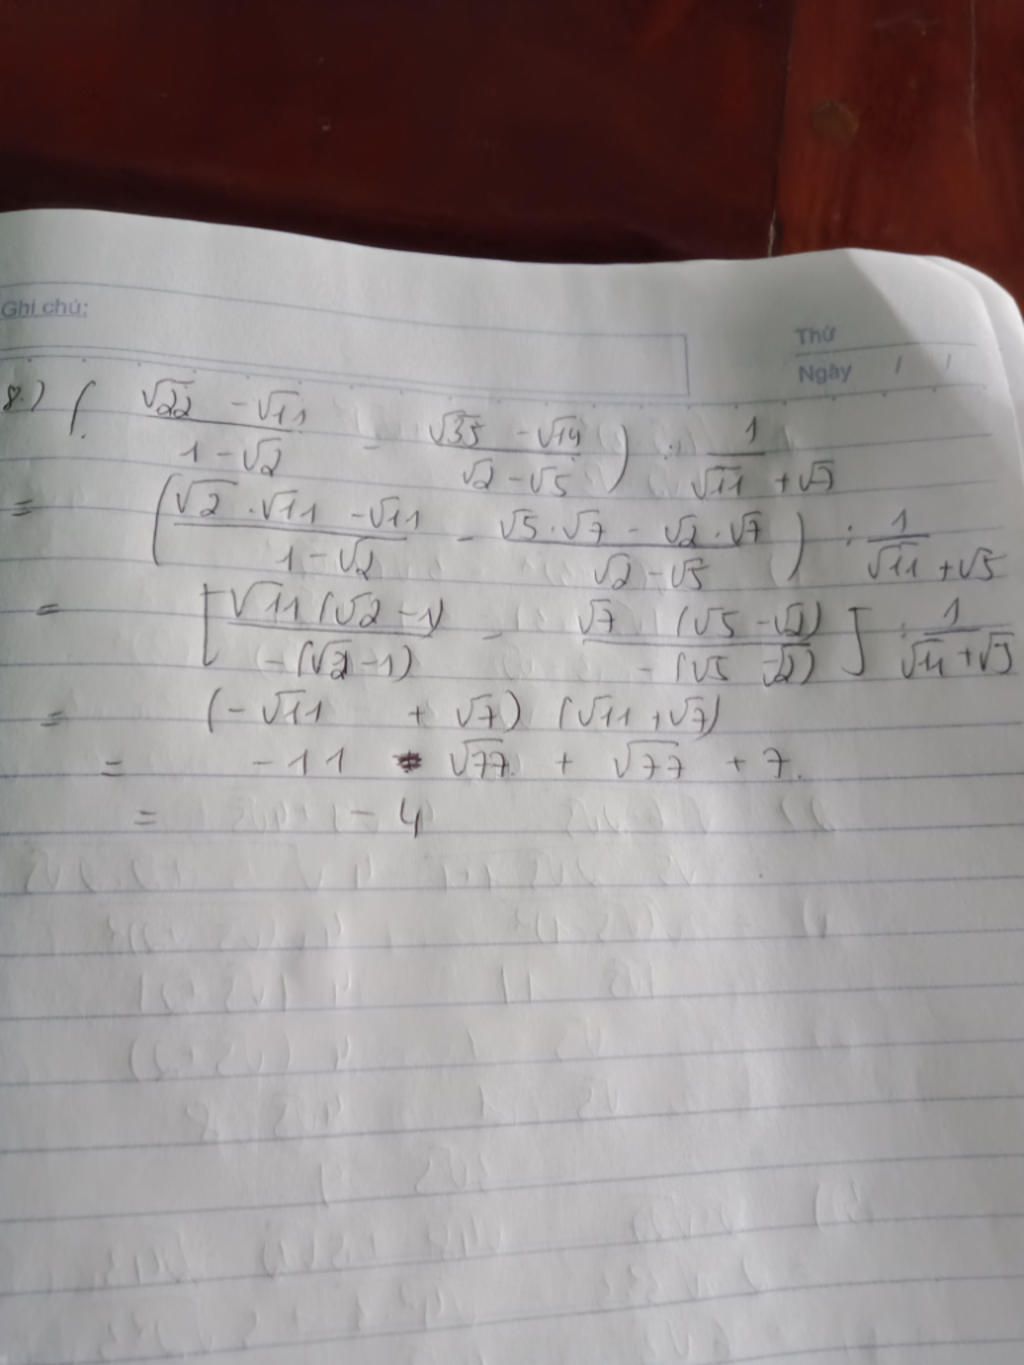 Ghi chú:
Thứ
Ngày / /
8.) ( (√22 - √11)/(1 - √2) - (√35 - √14)/(√2 - √5) ) : 1/(√11 + √7)
= ( (√2 . √11 - √11)/(1 - √2) - (√5 . √7 - √2 . √7)/(√2 - √5) ) : 1/(√11 + √5)
= [ (√11 (√2 - 1))/(-(√2 - 1)) - (√7 (√5 - √2))/(-(√5 - √2)) ] : 1/(√11 + √5)
= (-√11 + √7) (√11 + √7)
= -11 - √77 + √77 + 7.
= -4